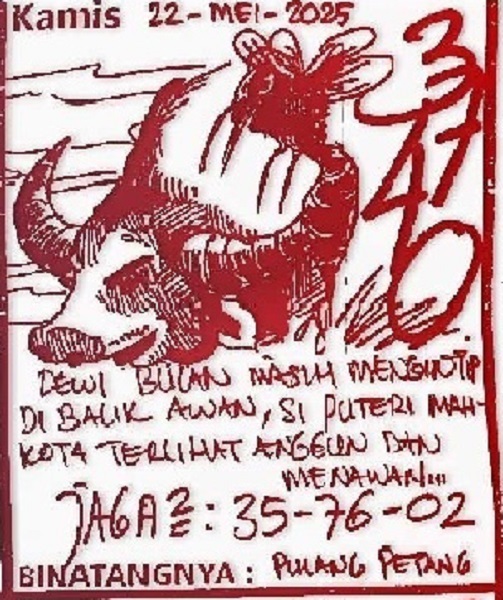 Kamis 22-MEI-2025
3
7
4
0
DEWI BULAN MASIH MENGINTIP
DI BALIK AWAN, SI PUTERI MAH-
KOTA TERLIHAT ANGGUN DAN
MENAWAN...
JAGA2 : 35-76-02
BINATANGNYA : PULANG PETANG